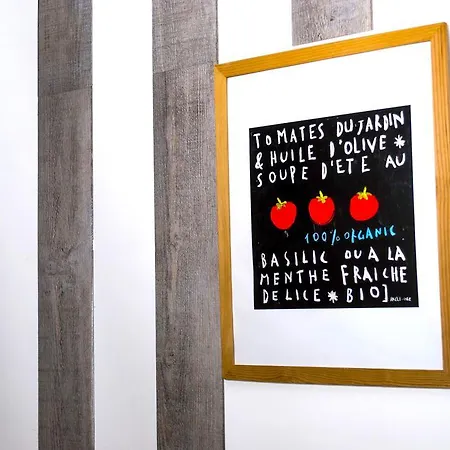 TOMATES DU·JARDIN
& HUILE D'OLIVE *
SOUPE D'ETE AU
100% ORGANIC
BASILIC OU A LA
MENTHE FRAICHE
DELICE * BIO]